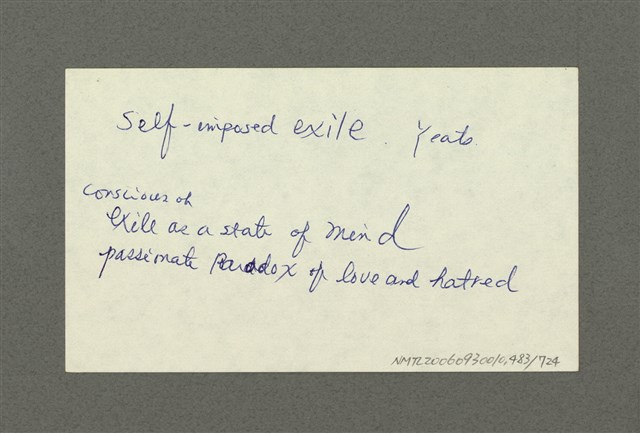 Self-imposed exile. Yeats.
conscious of
Exile as a state of mind
passionate Paradox of love and hatred
NMTL20060930010,483/724